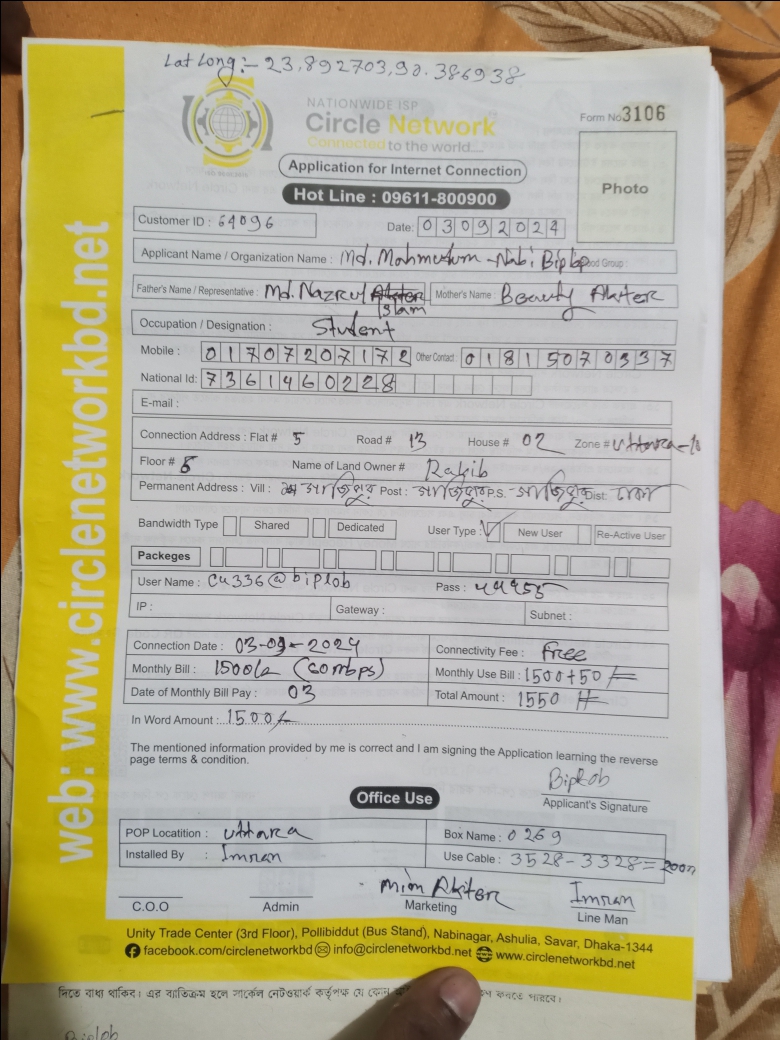 Lat Long:- 23.892703,90.386938
NATIONWIDE ISP
Circle Network
Connected to the world...
Form No 3106
Application for Internet Connection
Hot Line : 09611-800900
Photo
web: www.circlenetworkbd.net
Customer ID : 64096 Date: 03092024
Applicant Name / Organization Name : Md. Mahmudun -Nabi Biplob od Group :
Father's Name / Representative : Md. Nazrul Akter Islam Mother's Name : Beauty Akter
Occupation / Designation : Student
Mobile : 01707207172 Other Contact : 01815070337
National Id: 7361460228
E-mail :
Connection Address : Flat # 5 Road # 13 House # 02 Zone # Uttara-10
Floor # 5 Name of Land Owner # Rakib
Permanent Address : Vill : Post : P.S. Dist: ঢাকা
Bandwidth Type Shared Dedicated User Type : ✓ New User Re-Active User
Packeges
User Name : cu336@biplob Pass : 44955
IP : Gateway : Subnet :
Connection Date : 03-09-2024 Connectivity Fee : Free
Monthly Bill : 1500/= (60mbps) Monthly Use Bill : 1500+50/=
Date of Monthly Bill Pay : 03 Total Amount : 1550
In Word Amount : 1500/-
The mentioned information provided by me is correct and I am signing the Application learning the reverse
page terms & condition.
Biplob
Applicant's Signature
Office Use
POP Locatition : Uttara Box Name : 0269
Installed By : Imran Use Cable : 3528-3328=200m
Mim Akter Imran
C.O.O Admin Marketing Line Man
Unity Trade Center (3rd Floor), Pollibiddut (Bus Stand), Nabinagar, Ashulia, Savar, Dhaka-1344
facebook.com/circlenetworkbd info@circlenetworkbd.net www.circlenetworkbd.net
দিতে বাধ্য থাকিব। এর ব্যতিক্রম হলে সার্কেল নেটওয়ার্ক কর্তৃপক্ষ যে কোন করতে পারবে।
Biplob